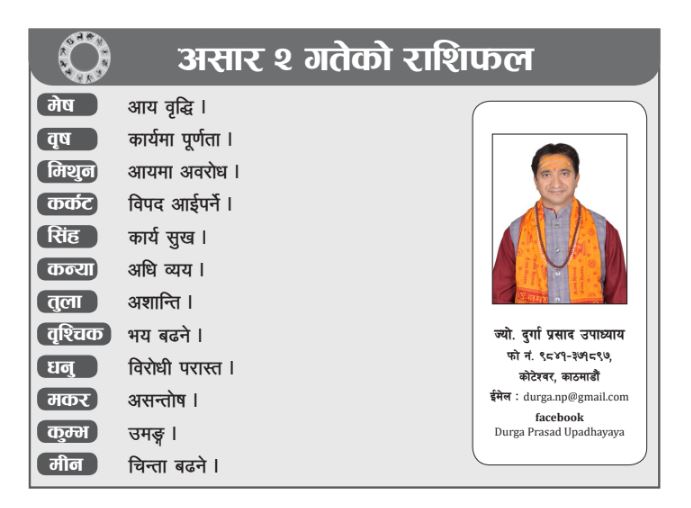 असार २ गतेको राशिफल
मेष आय वृद्धि ।
वृष कार्यमा पूर्णता ।
मिथुन आयमा अवरोध ।
कर्कट विपद आईपर्ने ।
सिंह कार्य सुख ।
कन्या अधि व्यय ।
तुला अशान्ति ।
वृश्चिक भय बढने ।
धनु विरोधी परास्त ।
मकर असन्तोष ।
कुम्भ उमङ्ग ।
मीन चिन्ता बढने ।
ज्यो. दुर्गा प्रसाद उपाध्याय
फो नं. ९८४१-३७१८९७,
कोटेश्वर, काठमाडौं
ईमेल : durga.np@gmail.com
facebook
Durga Prasad Upadhayaya